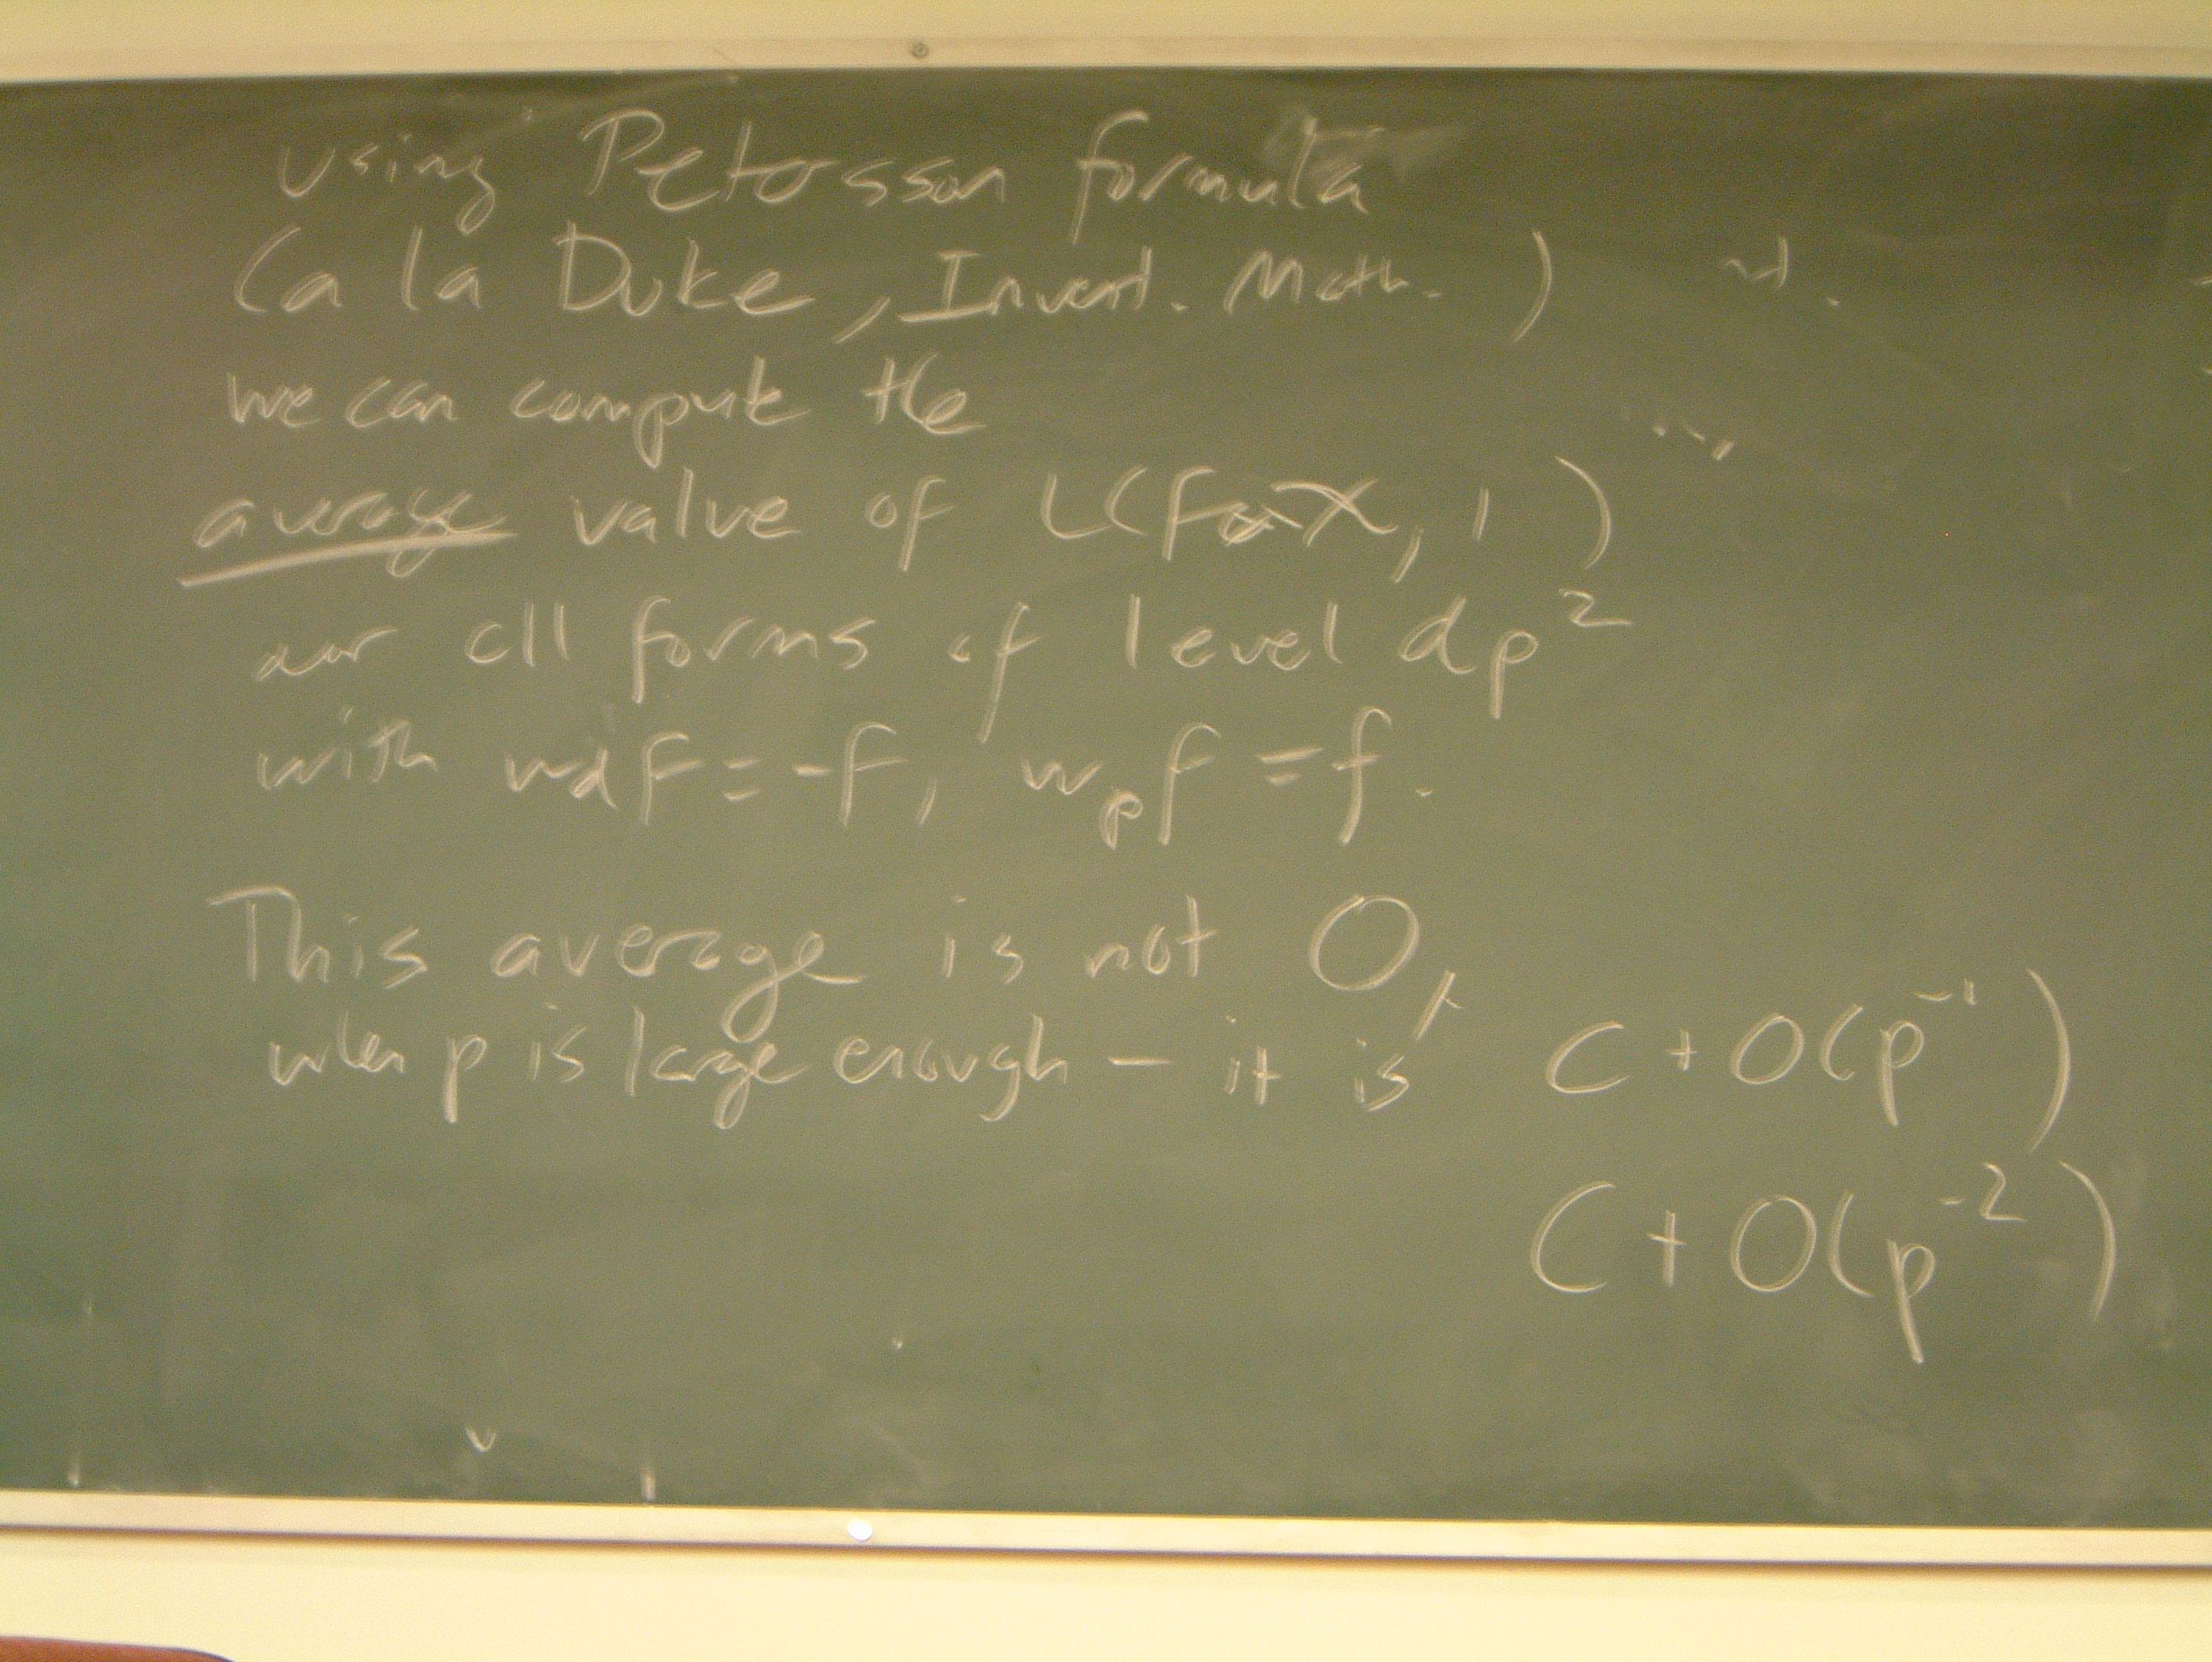 Using Petersson formula
(a la Duke, Invent. Math. )
we can compute the
average value of L(f⊗χ, 1)
over all forms of level dp²
with w_d f = -f, w_p f = f.
This average is not 0,
when p is large enough — it is C + O(p⁻¹)
C + O(p⁻²)